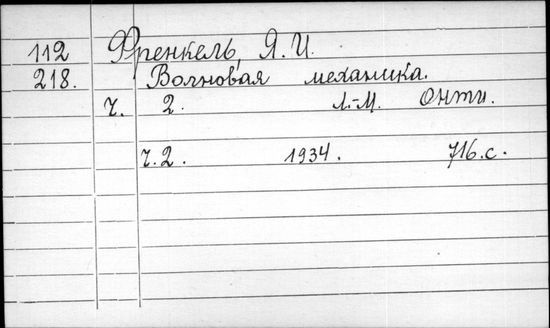 112 Френкель, Я. И.
218. Волновая механика.
ч. 2. Л.-М. ОНТИ.
ч. 2. 1934. 716.с.